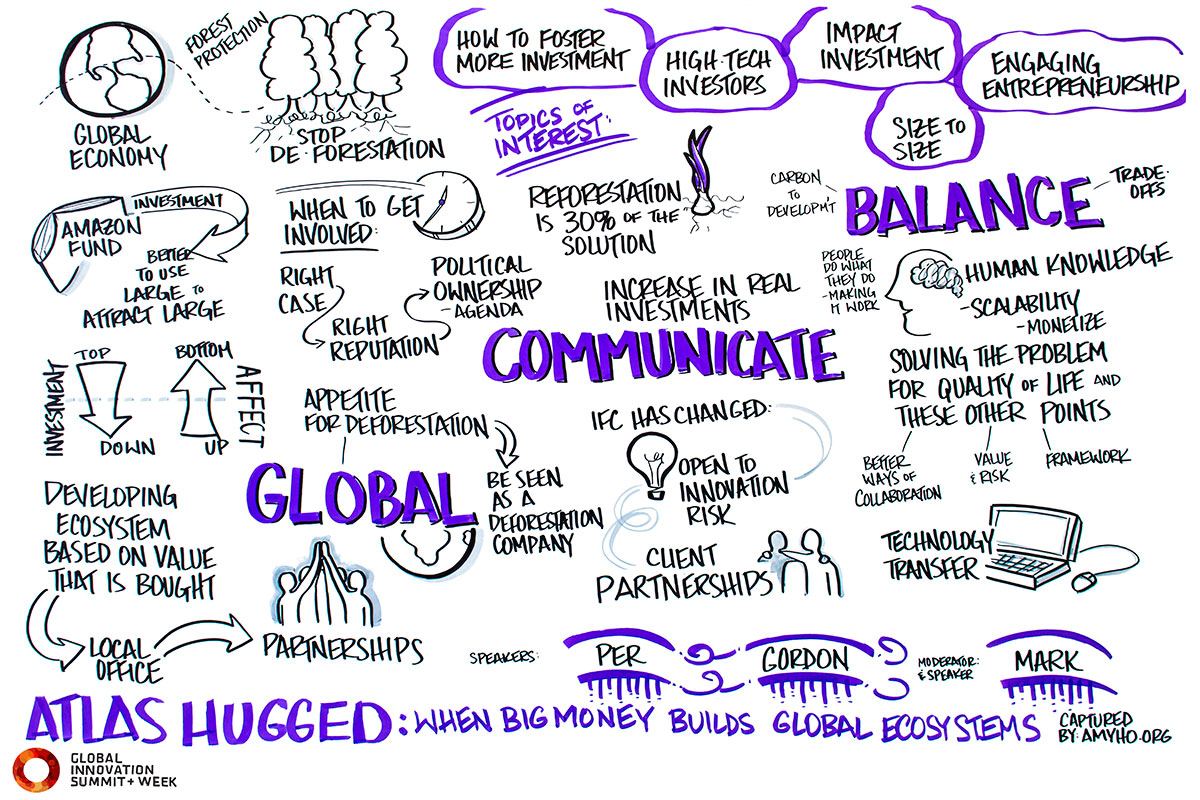 FOREST
PROTECTION
GLOBAL
ECONOMY
STOP
DE-FORESTATION
HOW TO FOSTER
MORE INVESTMENT
HIGH-TECH
INVESTORS
IMPACT
INVESTMENT
ENGAGING
ENTREPRENEURSHIP
SIZE TO
SIZE
TOPICS OF
INTEREST:
AMAZON
FUND
INVESTMENT
BETTER
TO USE
LARGE TO
ATTRACT LARGE
WHEN TO GET
INVOLVED:
RIGHT
CASE
RIGHT
REPUTATION
POLITICAL
OWNERSHIP
-AGENDA
REFORESTATION
IS 30% OF THE
SOLUTION
CARBON
TO
DEVELOPM'T
BALANCE
TRADE-
OFFS
PEOPLE
DO WHAT
THEY DO
-MAKING
IT WORK
HUMAN KNOWLEDGE
-SCALABILITY
-MONETIZE
INCREASE IN REAL
INVESTMENTS
COMMUNICATE
SOLVING THE PROBLEM
FOR QUALITY OF LIFE AND
THESE OTHER POINTS
BETTER
WAYS OF
COLLABORATION
VALUE
& RISK
FRAMEWORK
INVESTMENT
TOP
DOWN
BOTTOM
UP
AFFECT
APPETITE
FOR DEFORESTATION
GLOBAL
BE SEEN
AS A
DEFORESTATION
COMPANY
IFC HAS CHANGED:
OPEN TO
INNOVATION
RISK
CLIENT
PARTNERSHIPS
TECHNOLOGY
TRANSFER
DEVELOPING
ECOSYSTEM
BASED ON VALUE
THAT IS BOUGHT
LOCAL
OFFICE
PARTNERSHIPS
SPEAKERS:
PER
GORDON
MODERATOR:
& SPEAKER
MARK
ATLAS HUGGED: WHEN BIG MONEY BUILDS GLOBAL ECOSYSTEMS
CAPTURED
BY: AMYHO.ORG
GLOBAL
INNOVATION
SUMMIT + WEEK